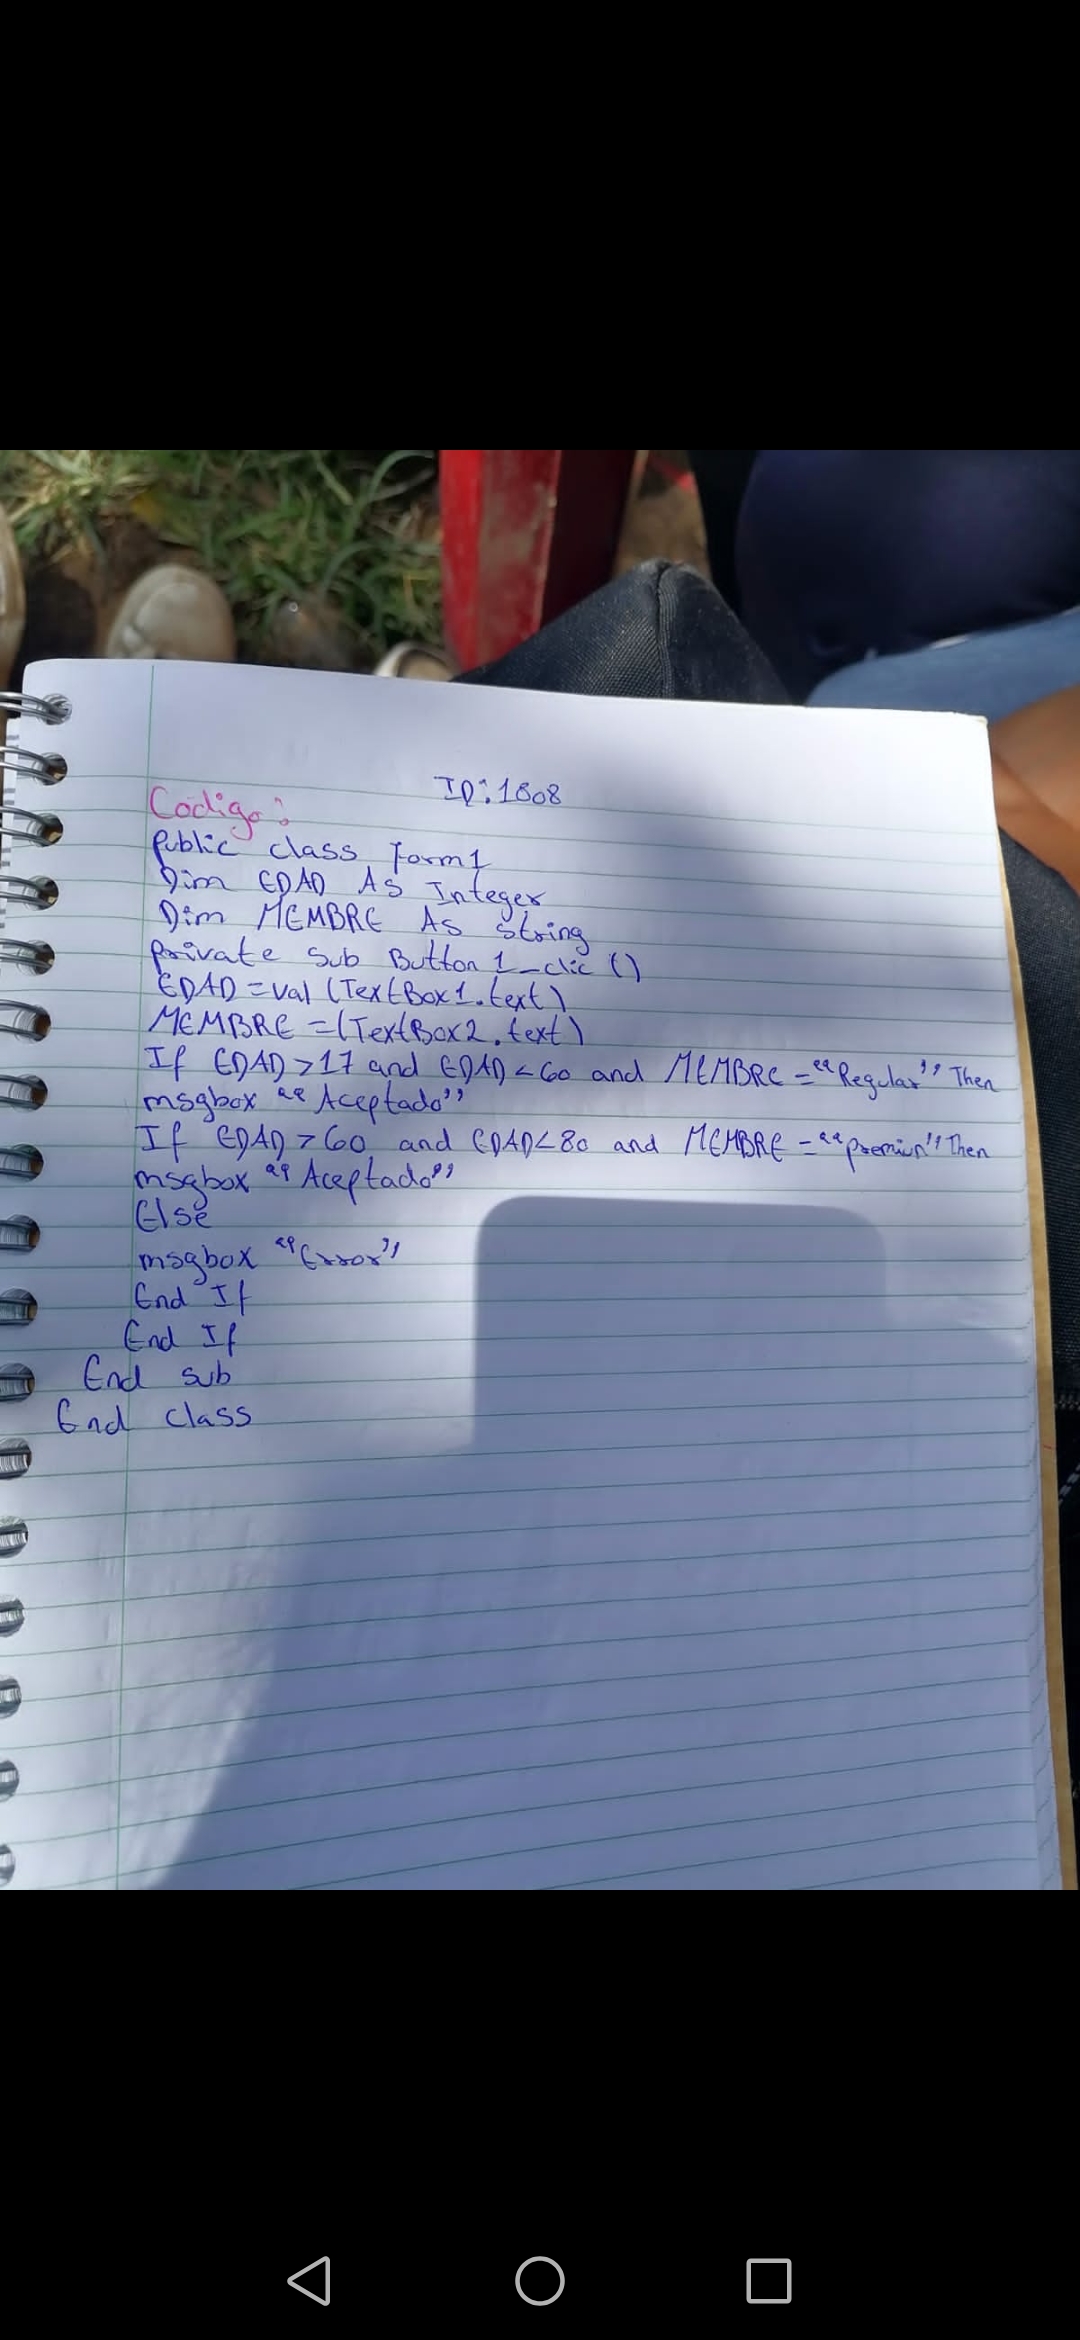 ID:1808
Codigo:
Public class Form1
Dim EDAD As Integer
Dim MEMBRE As String
private sub Button1_clic ()
EDAD = val (TextBox1.text)
MEMBRE = (TextBox2.text)
If EDAD > 17 and EDAD < 60 and MEMBRE = "Regular" Then
msgbox "Aceptado"
If EDAD > 60 and EDAD < 80 and MEMBRE = "premiun" Then
msgbox "Aceptado"
Else
msgbox "Error"
End If
End If
End sub
End class